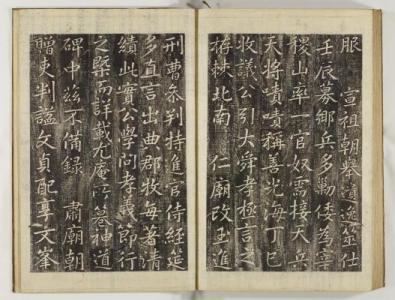 服 宣祖朝擧遺逸筮仕
壬辰募鄉兵多勦倭為宰
稷山率一官奴需接天兵
天將嘖嘖稱善光海丁巳
收議公引大舜孝極言之
荐棘北南 仁廟改玉進
刑曹叅判特進官侍經筵
多直言出典郡牧每著清
績此實公學問孝義節行
之槩而詳載尤庵墓神道
碑中玆不備錄 肅廟朝
贈吏判諡文貞配享文峯